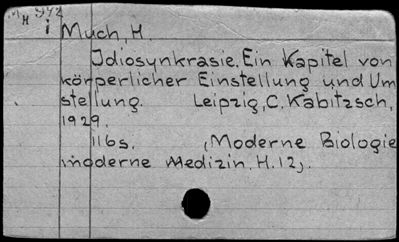 M H 942
i Much, H.
Idiosynkrasie. Ein Kapitel von
körperlicher Einstellung und Um
stellung. Leipzig, C. Kabitzsch,
1929.
116s. (Moderne Biologie
moderne Medizin, H. 12).